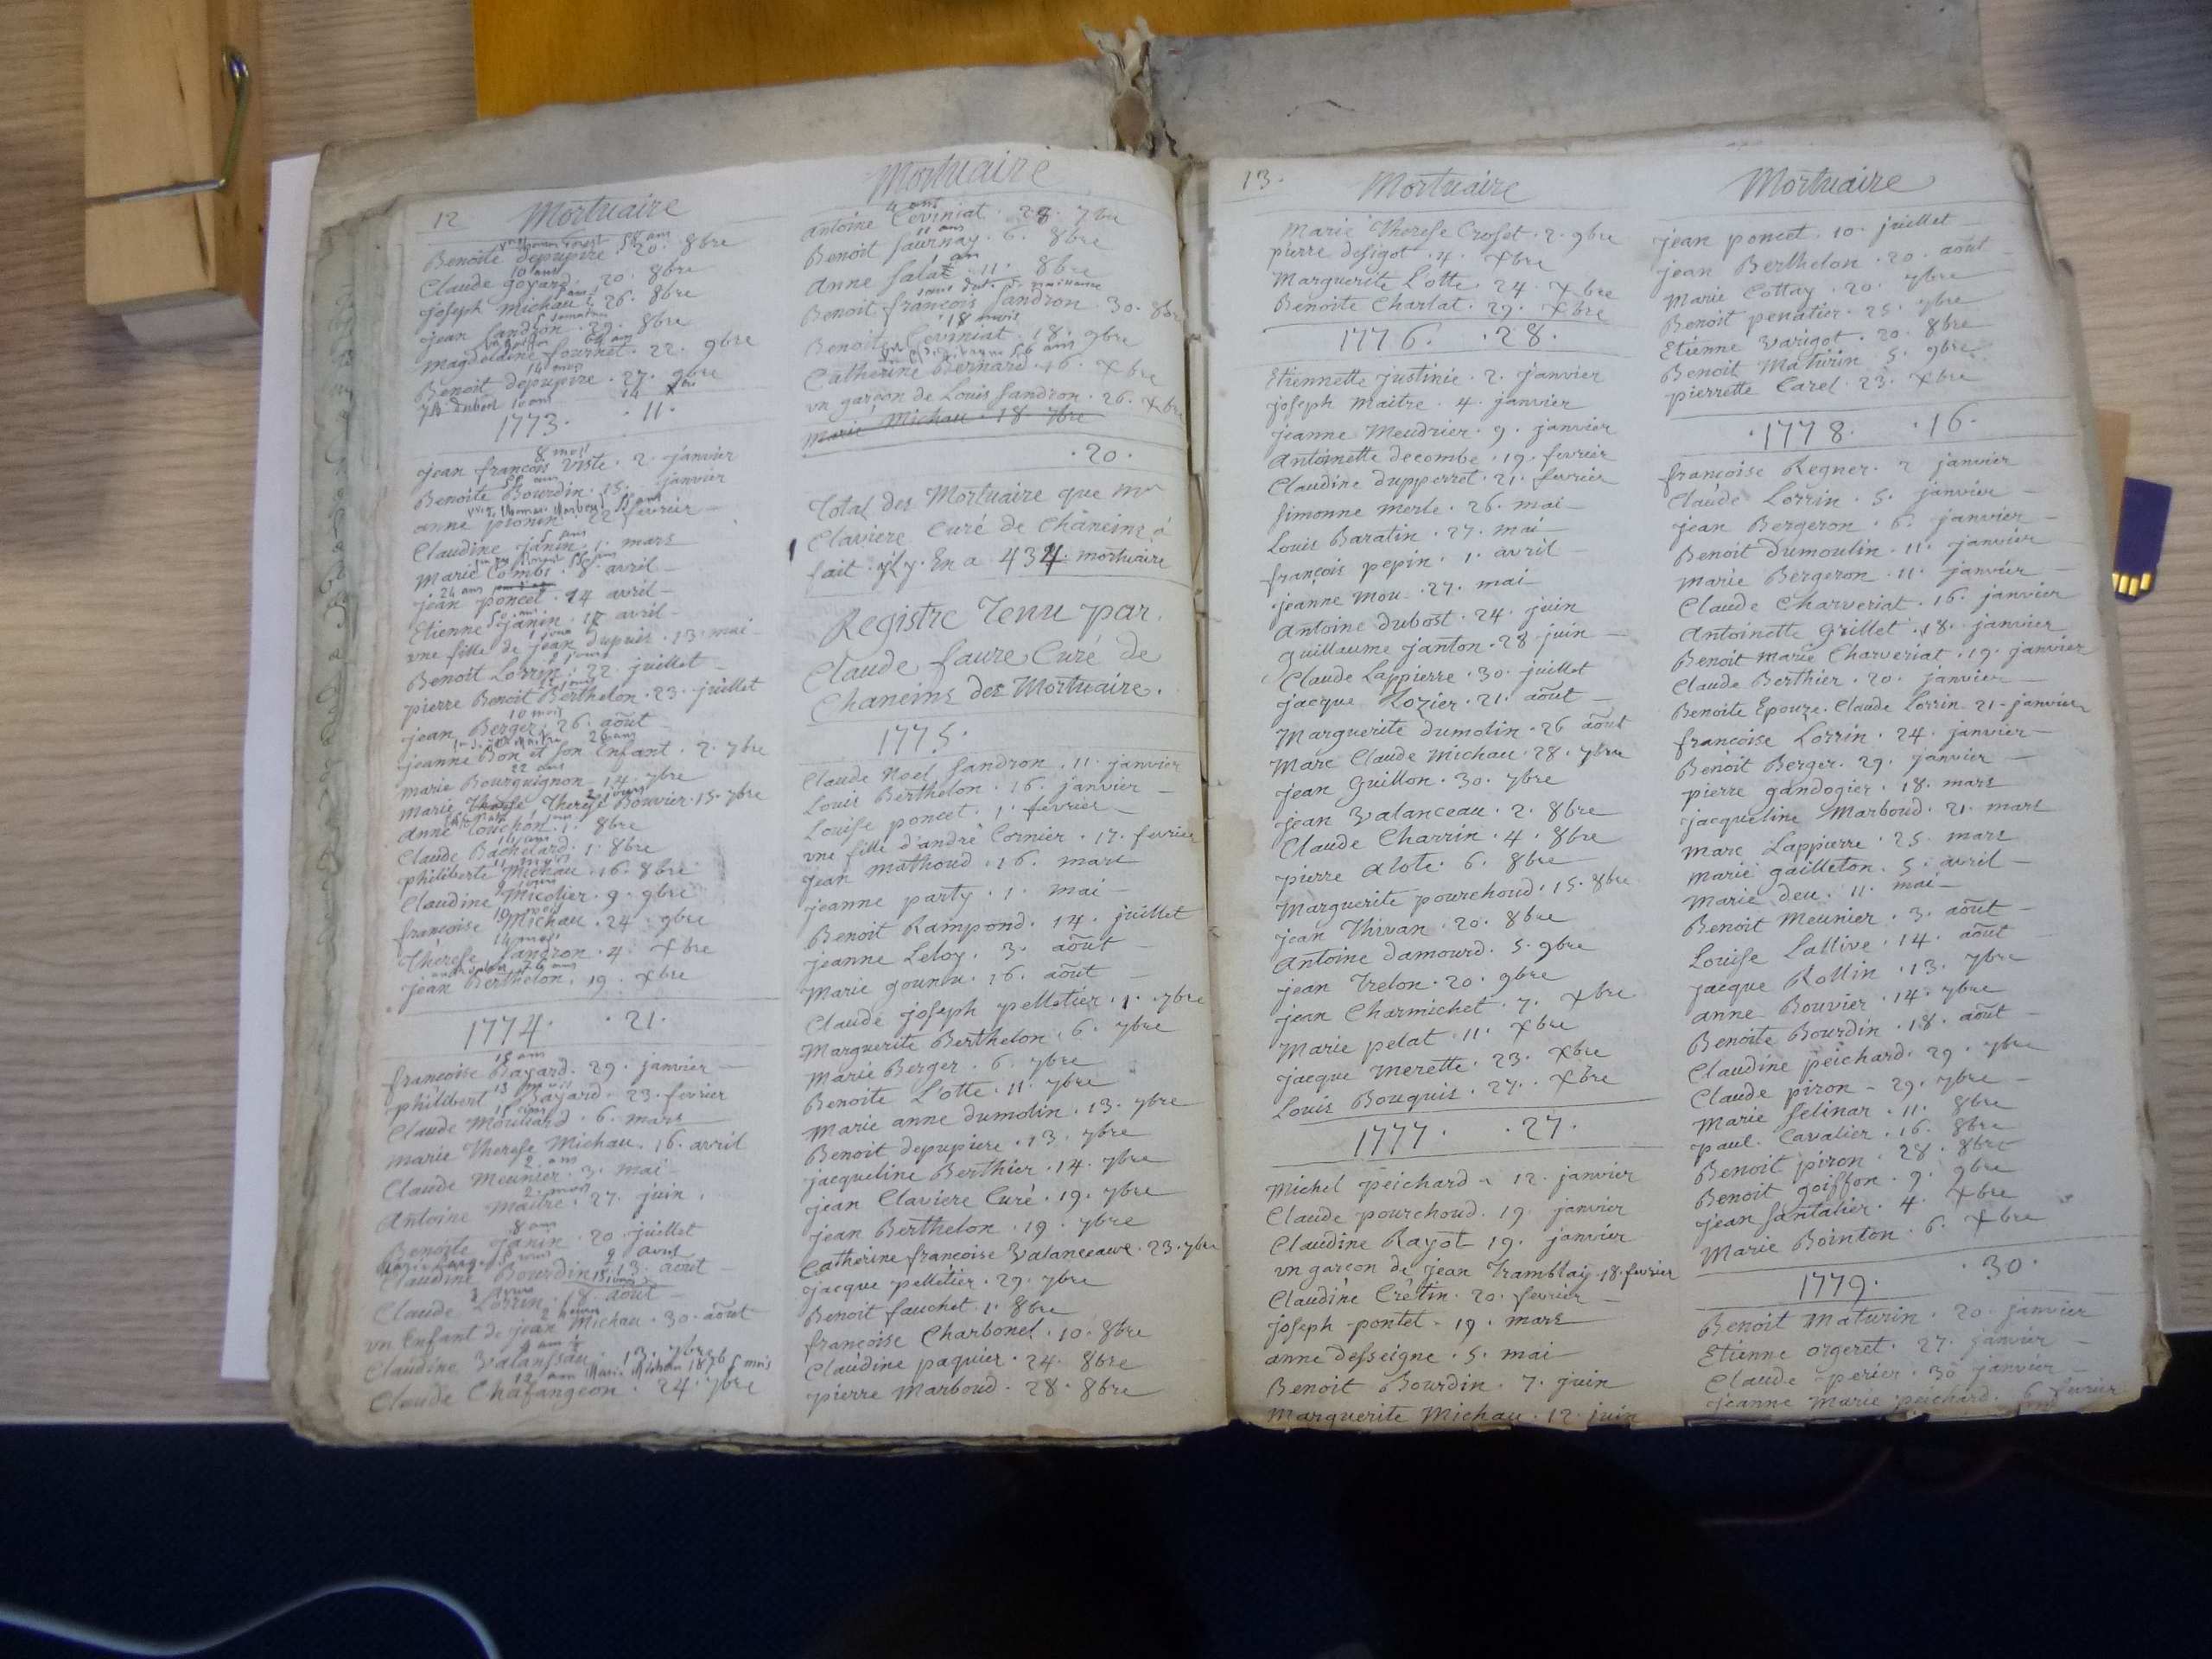 12 Mortuaire
Benoite depupire 20. 8bre
10 ans
Claude goyard 20. 8bre
joseph Michau 26. 8bre
jean Sandron . 29. 8bre
Magdelaine fournet . 22. 9bre
14 mois
Benoit depupire . 27. 9bre
1773. . 11.
8 mois
jean francois Viste . 2. janvier
Benoite Bourdin . 15. janvier
anne 22 fevrier
Claudine janin . 1. mars
Marie Combe . 8. avril
24 ans
jean poncet . 14 avril
Etienne janin . 17 avril
vne fille de jean dupuis . 13. mai
Benoit Lorrin . 22. juillet
pierre Benoit Berthelon . 23. juillet
10 mois
jean Berger . 26. aout
jeanne Bon et son Enfant . 2. 7bre
22 ans
marie Bourguignon 14. 7bre
marie Therese Bouvier . 15. 7bre
anne Touchon . 1. 8bre
Claude Bachelard . 1. 8bre
philiberte Michau . 16. 8bre
Claudine Micolier . 9. 9bre
francoise Michau . 24. 9bre
Therese Sandron . 4. Xbre
jean Berthelon . 19. Xbre
1774. . 21.
francoise Bayard . 29. janvier
philibert Bayard . 23. fevrier
Claude Mouliard . 6. mars
marie Therese Michau . 16. avril
2. ans
Claude Meunier . 3. mai
2. mois
Antoine Maitre . 27. juin .
8 ans
Benoite janin . 20. juillet
Claudine Bourdin . 13. aout
Claude Lorrin . 18. aout
vn Enfant de jean Michau . 30. aout
Claudine Valanssau . 13. 7bre
Claude Chafangeon . 24. 7bre
Mortuaire
4 ans
antoine Coviniat . 28. 7bre
11 ans
Benoit Saurnay . 6. 8bre
an
Anne Salat . 11. 8bre
Benoit francois Sandron . 30. 8bre
18 mois
Benoite Coviniat . 18. 9bre
Catherine Bernard . 16. Xbre
vn garcon de Louis Sandron . 26. Xbre
marie Michau . 18. 7bre
. 20 .
Total des Mortuaire que Mr
Claviere Curé de Chaneins à
fait . il y . En a 434 mortuaire
Registre Tenu par
Claude faure Curé de
Chaneins des Mortuaire .
1775.
Claude Noel Sandron . 11. janvier
Louis Berthelon . 16. janvier
Louise poncet . 1. fevrier
vne fille d'andré Cornier . 17. fevrier
jean Mathoud . 16. mars
jeanne party . 1. mai
Benoit Rampond . 14. juillet
jeanne Leloy . 3. aout
Marie gountu . 16. aout
Claude joseph pelletier . 1. 7bre
Marguerite Berthelon . 6. 7bre
Marie Berger . 6. 7bre
Benoite L'otte . 11. 7bre
Marie anne dumolin . 13. 7bre
Benoit depupiere . 13. 7bre
jacqueline Berthier . 14. 7bre
jean Claviere Curé . 19. 7bre
jean Berthelon . 19. 7bre
Catherine francoise Valanceaux . 23. 7bre
jacque pelletier . 29. 7bre
Benoit fauchet . 1. 8bre
francoise Charbonel . 10. 8bre
Claudine paquier . 24. 8bre
pierre Marboud . 28. 8bre
13. Mortuaire
Marie Therese Croset . 2. 9bre
pierre desigot . 4. Xbre
Marguerite L'otte 24. Xbre
Benoite Charlat . 29. Xbre
1776. . 28 .
Etiennette justinie . 2. janvier
joseph Maitre . 4. janvier
jeanne Meudrier . 9. janvier
Antoinette decombe . 19. fevrier
Claudine dupperret . 21. fevrier
Simonne Merle . 26. mai
Louis Baratin . 27. mai
francois pepin . 1. avril
jeanne Mou . 27. mai
Antoine dubost . 24. juin
guillaume janton . 28 juin
Claude Lappierre . 30. juillet
jacque Lozier . 21. aout
Marguerite dumolin . 26 aout
Marc Claude Michau . 28. 7bre
jean Guillon . 30. 7bre
jean Valanceau . 2. 8bre
Claude Charrin . 4. 8bre
pierre alote . 6. 8bre
Marguerite pourchoud . 15. 8bre
jean Thivan . 20. 8bre
Antoine damourd . 5. 9bre
jean Trelon . 20. 9bre
jean Charmichet . 7. Xbre
Marie pelat . 11. Xbre
jacque Merette . 23. Xbre
Louis Bouquis . 27. Xbre
1777. . 27.
Michel peichard . 12. janvier
Claude pourchoud . 19. janvier
Claudine Rayot 19. janvier
vn garcon de jean Tramblay . 18. fevrier
Claudine Crétin . 20. fevrier
joseph pontet . 19. mars
anne desseigne . 5. mai
Benoit Bourdin . 7. juin
Marguerite Michau . 12. juin
Mortuaire
jean poncet . 10. juillet
jean Berthelon . 20. aout
Marie Cottay . 20. 7bre
Benoit penatier . 25. 7bre
Etienne Varigot . 20. 8bre
Benoit Maturin 5. 9bre
pierrette Carel . 23. Xbre
. 1778. . 16 .
francoise Regner . 2 janvier
Claude Lorrin . 5. janvier
jean Bergeron . 6. janvier
Benoit Dumoulin . 11. janvier
Marie Bergeron . 11. janvier
Claude Charveriat . 16. janvier
Antoinette Grillet . 18. janvier
Benoit Marie Charveriat . 19. janvier
Claude Berthier . 20. janvier
Benoite Epouze . Claude Lorrin 21 . janvier
francoise Lorrin . 24. janvier
Benoit Berger . 29. janvier
pierre gandogier . 18. mars
jacqueline Marboud . 21. mars
Marc Lappierre . 25. mars
Marie gailleton . 5. avril
Marie deu . 11. mai
Benoit Meunier . 3. aout
Louise Lallive . 14. aout
jacque Rollin . 13. 7bre
anne Bouvier . 14. 7bre
Benoite Bourdin . 18. aout
Claudine peichard . 29. 7bre
Claude piron . 29. 7bre
Marie Selinar . 11. 8bre
paul Cavalier . 16. 8bre
Benoit piron . 28. 8bre
Benoit goiffon . 9. 9bre
jean Santalier . 4. Xbre
Marie Bointon . 6. Xbre
1779. . 30 .
Benoit Maturin . 20. janvier
Etienne orgeret . 27. janvier
Claude perier . 30 janvier
jeanne Marie peichard . 6. fevrier